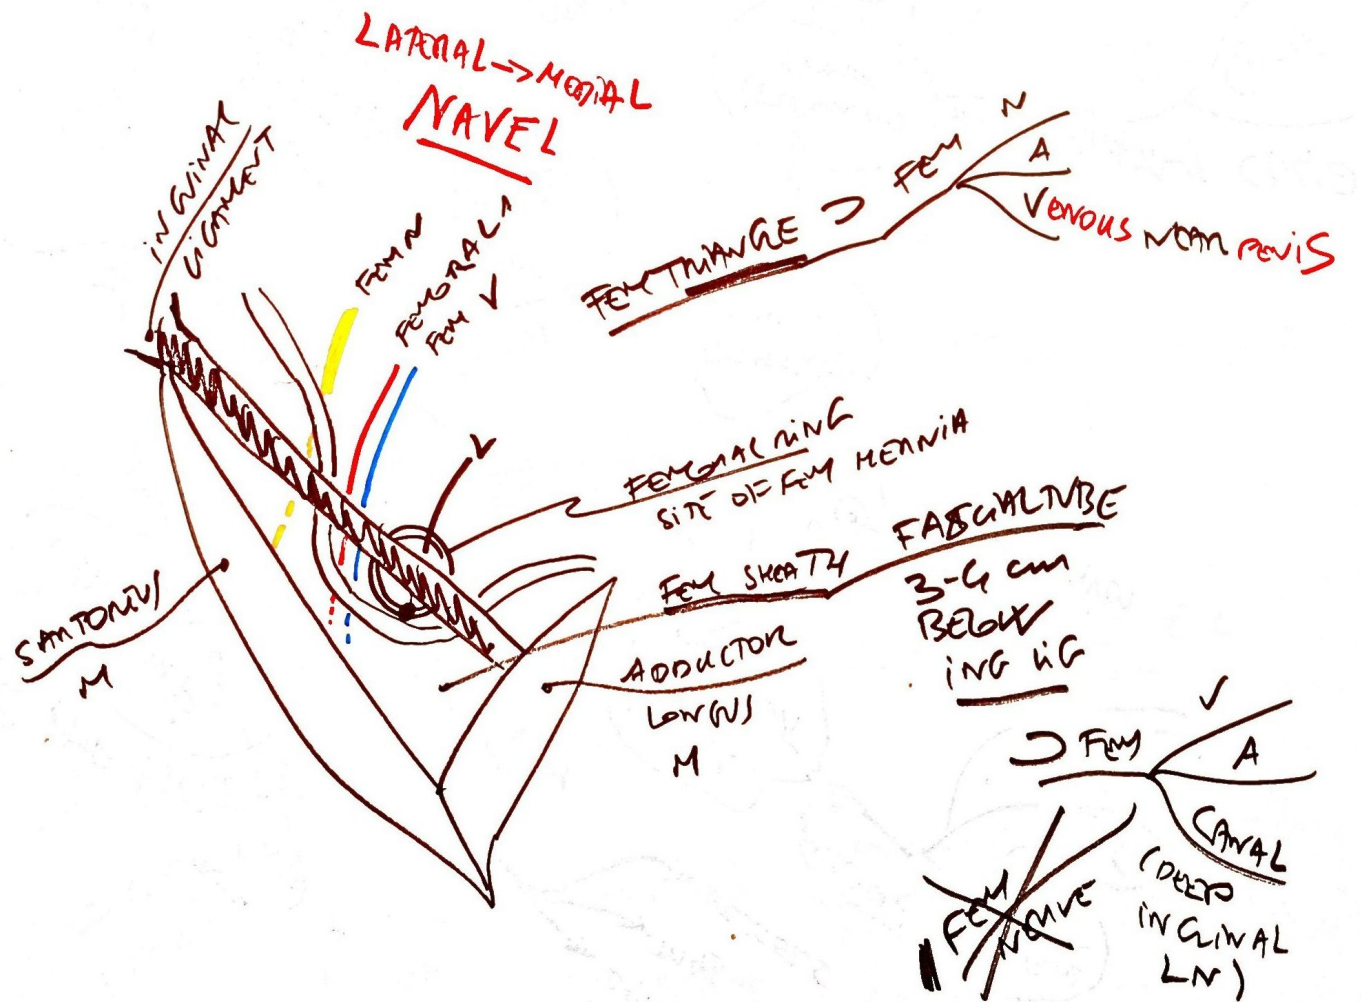 LATERAL → MEDIAL
NAVEL
INGUINAL
LIGAMENT
FEM N
FEMORAL A
FEM V
FEM TRIANGLE ⊃ FEM
N
A
VENOUS NEAR PENIS
V
FEMORAL RING
SITE OF FEM HERNIA
FEM SHEATH
FASCIAL TUBE
3-4 cm
BELOW
ING LIG
SARTORIUS
M
ADDUCTOR
LONGUS
M
⊃ FEM
V
A
CANAL
(DEEP
INGUINAL
LN)
FEM
NERVE